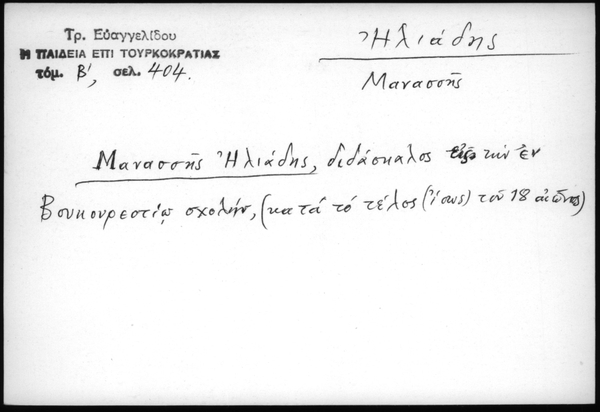 Τρ. Εὐαγγελίδου
Η ΠΑΙΔΕΙΑ ΕΠΙ ΤΟΥΡΚΟΚΡΑΤΙΑΣ
τόμ. Β', σελ. 404.
Ἡλιάδης
Μανασσῆς
Μανασσῆς Ἡλιάδης, διδάσκαλος τὴν ἐν
Βουκουρεστίῳ σχολήν, (κατά τό τέλος (ἴσως) τοῦ 18 αἰῶνος)